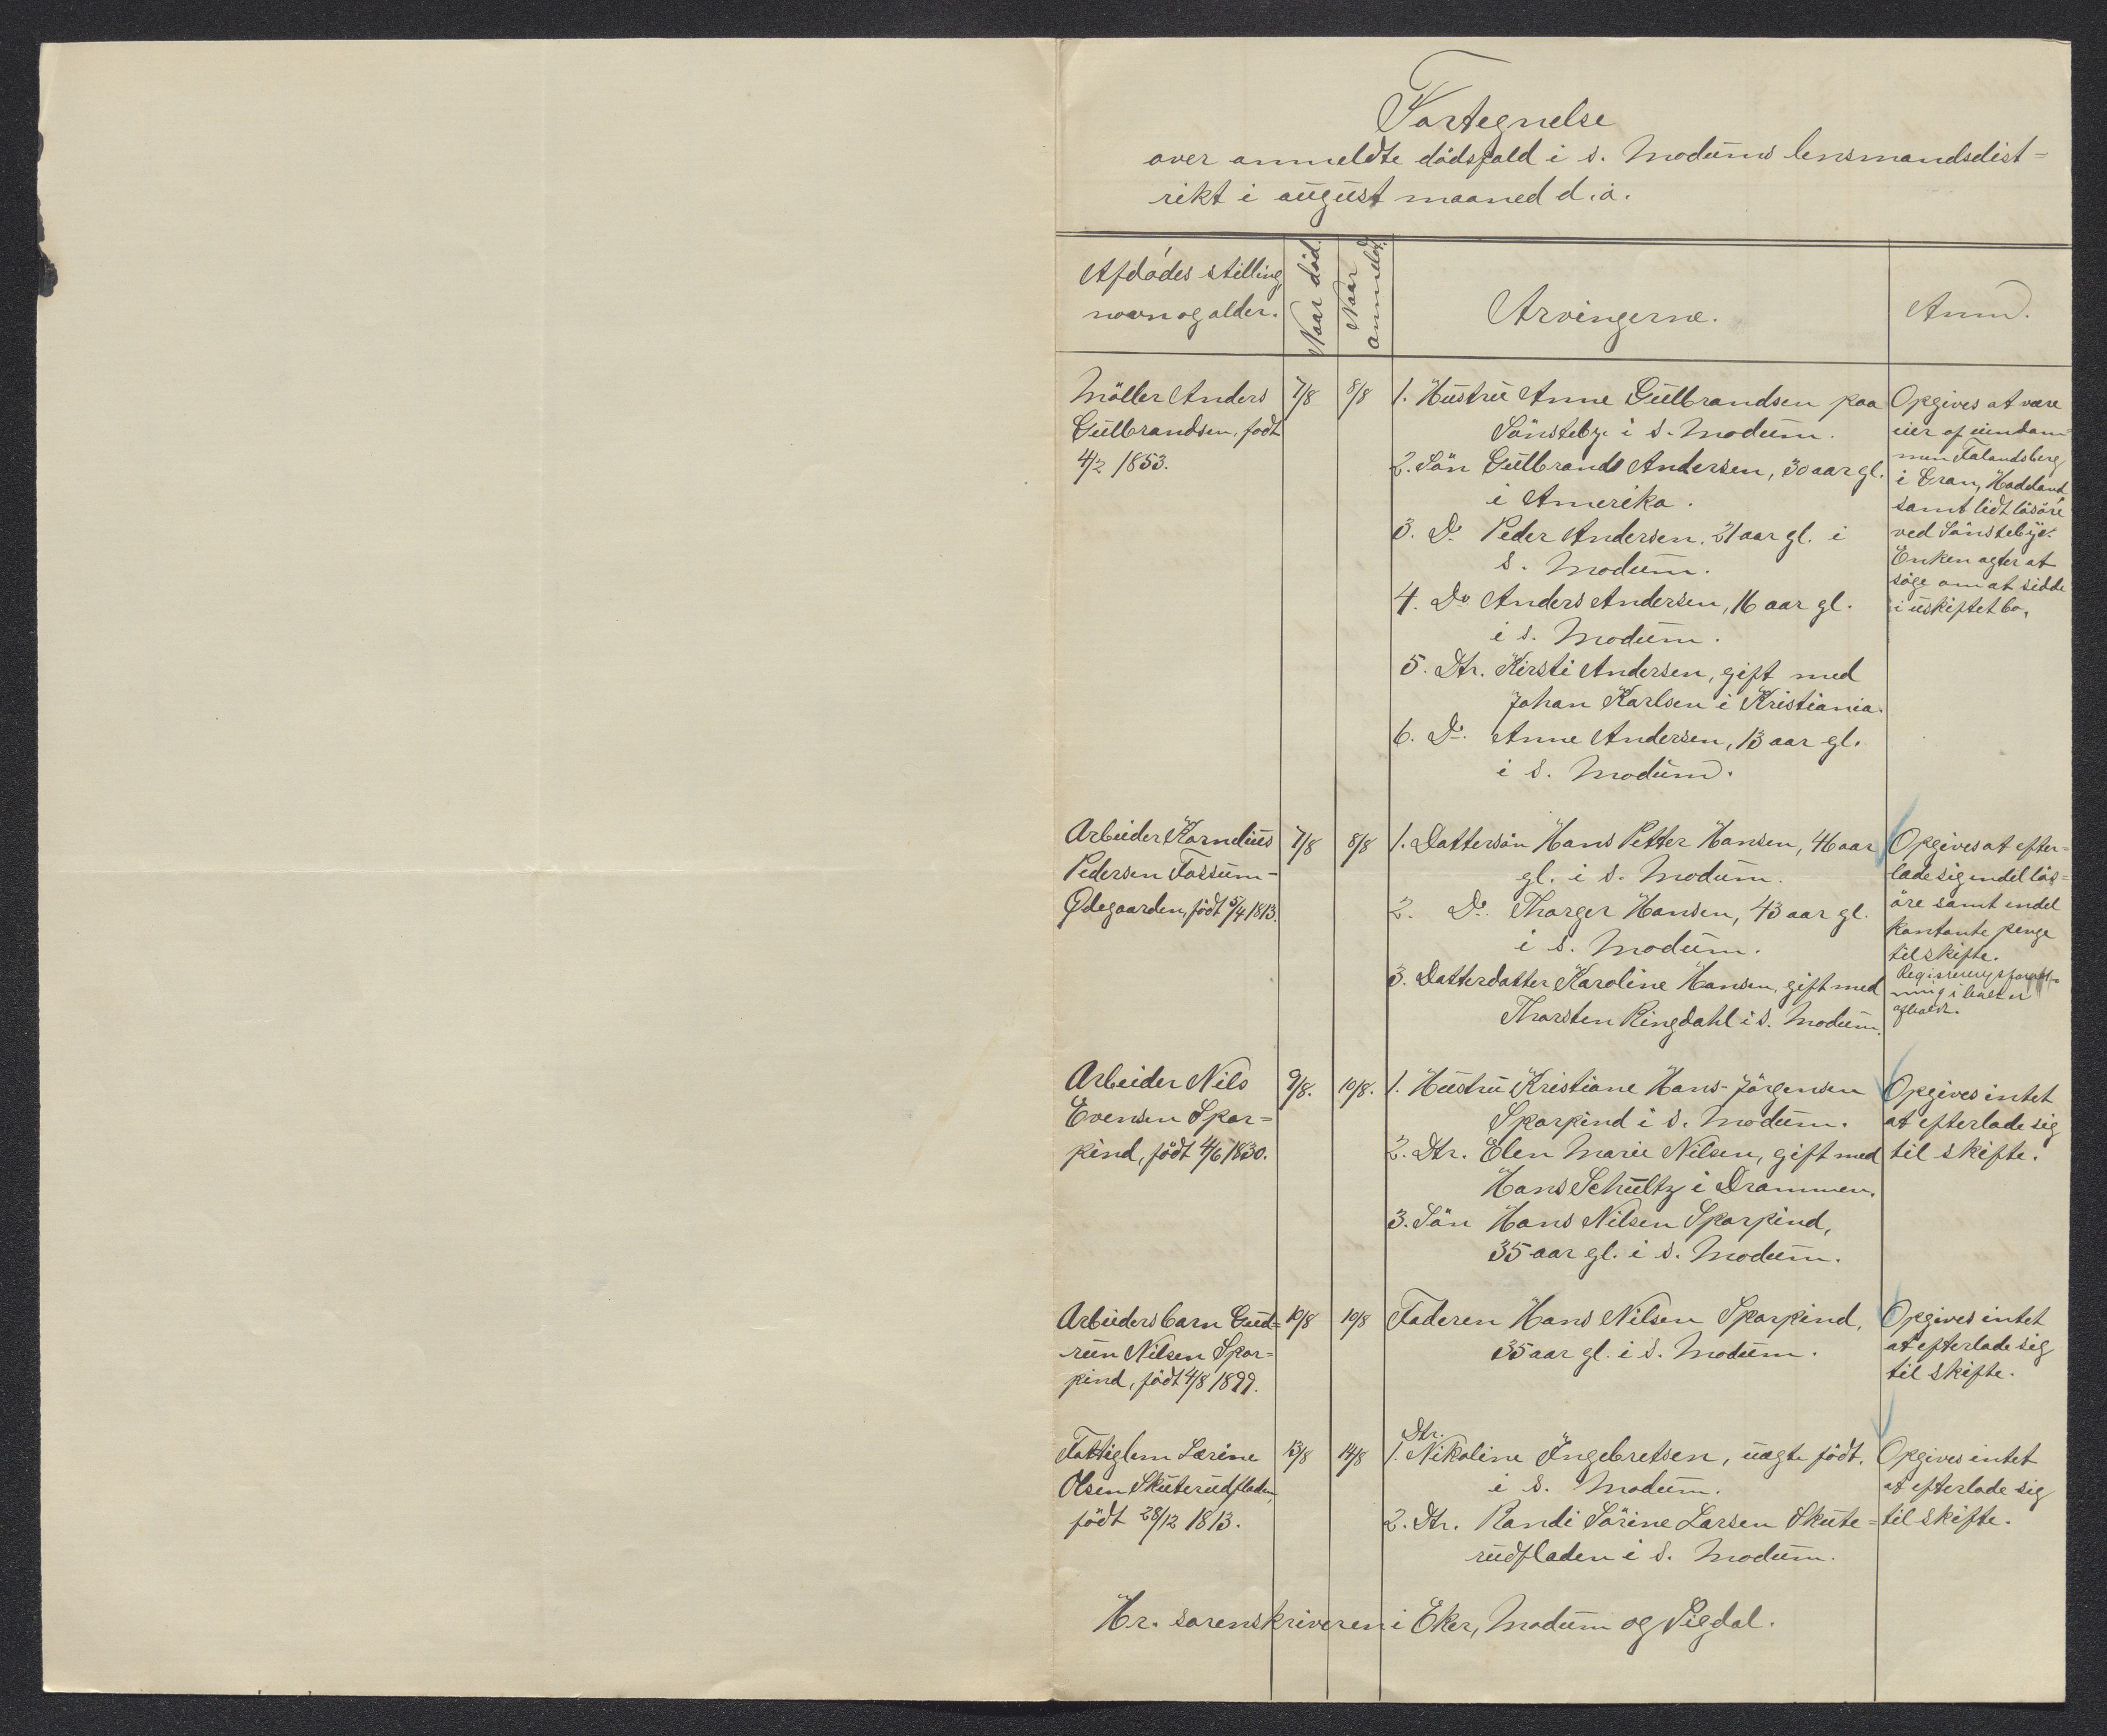 Fortegnelse
over anmeldte dödsfald i s. Modums lensmandsdist=
rikt i august maaned d.å.
Afdödes stilling,
navn og alder.
Naar död.
Naar
anmeldt.
Arvingerne.
Anm.
Möller Anders
Gulbrandsen, födt
4/2 1853.
7/8
8/8
1. Hustru Anne Gulbrandsen paa
Sönsteby i s. Modum.
2. Sön Gulbrand Andersen, 30 aar gl.
i Amerika.
3. Do Peder Andersen, 21 aar gl. i
s. Modum.
4. Do Anders Andersen, 16 aar gl.
i s. Modum.
5. Dtr. Kirsti Andersen, gift med
Johan Karlsen i Kristiania.
6. Do. Anne Andersen, 13 aar gl.
i s. Modum.
Opgives at være
eier af eiendom=
men Falandsberg
i Gran, Hadeland,
samt lidt lösöre
ved Sönsteby.
Enken agter at
söge om at sidde
i uskiftet bo.
Arbeider Kornelius
Pedersen Fossum-
Ødegaarden, födt 5/4 1813.
7/8
8/8
1. Dattersön Hans Petter Hansen, 46 aar
gl. i s. Modum.
2. Do. Thorger Hansen, 43 aar gl.
i s. Modum.
3. Datterdatter Karoline Hansen, gift med
Thorsten Ringdahl i s. Modum.
Opgives at efter=
lade sig endel lös=
öre samt endel
kontante penge
til skifte.
i boet er
afholdt.
Arbeider Nils
Evensen Spar=
kind, födt 4/6 1830.
9/8.
10/8.
1. Hustru Kristiane Hans-Jörgensen
Sparkind i s. Modum.
2. Dtr. Elen Marie Nilsen, gift med
Hans Schultz i Drammen.
3. Sön Hans Nilsen Sparkind,
35 aar gl. i s. Modum.
Opgives intet
at efterlade sig
til skifte.
Arbeidersbarn Gud=
run Nilsen Spar=
kind, födt 4/8 1899.
10/8
10/8
Faderen Hans Nilsen Sparkind,
35 aar gl. i s. Modum.
Opgives intet
at efterlade sig
til skifte.
Fattiglem Lærine
Olsen Skuterudfladen,
födt 28/12 1813.
13/8
14/8
Dtr.
1. Nikoline Ingebretsen, uægte födt,
i s. Modum.
2. Dtr. Randi Sörine Larsen Skute=
rudfladen i s. Modum.
Opgives intet
at efterlade sig
til skifte.
Hr. sorenskriveren i Eker, Modum og Sigdal.